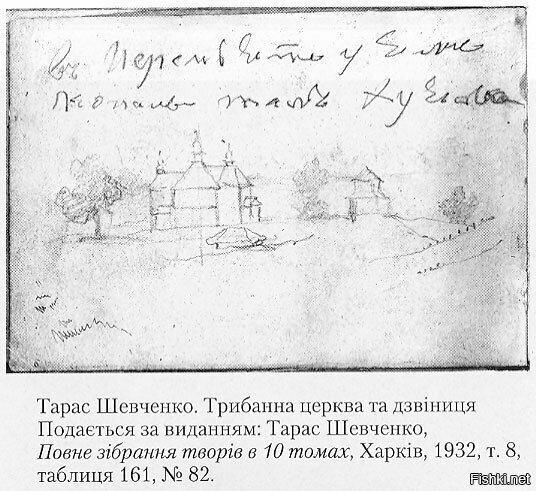 въ у
Тарас Шевченко. Трибанна церква та дзвіниця
Подається за виданням: Тарас Шевченко,
Повне зібрання творів в 10 томах, Харків, 1932, т. 8,
таблиця 161, № 82.
Fishki.net